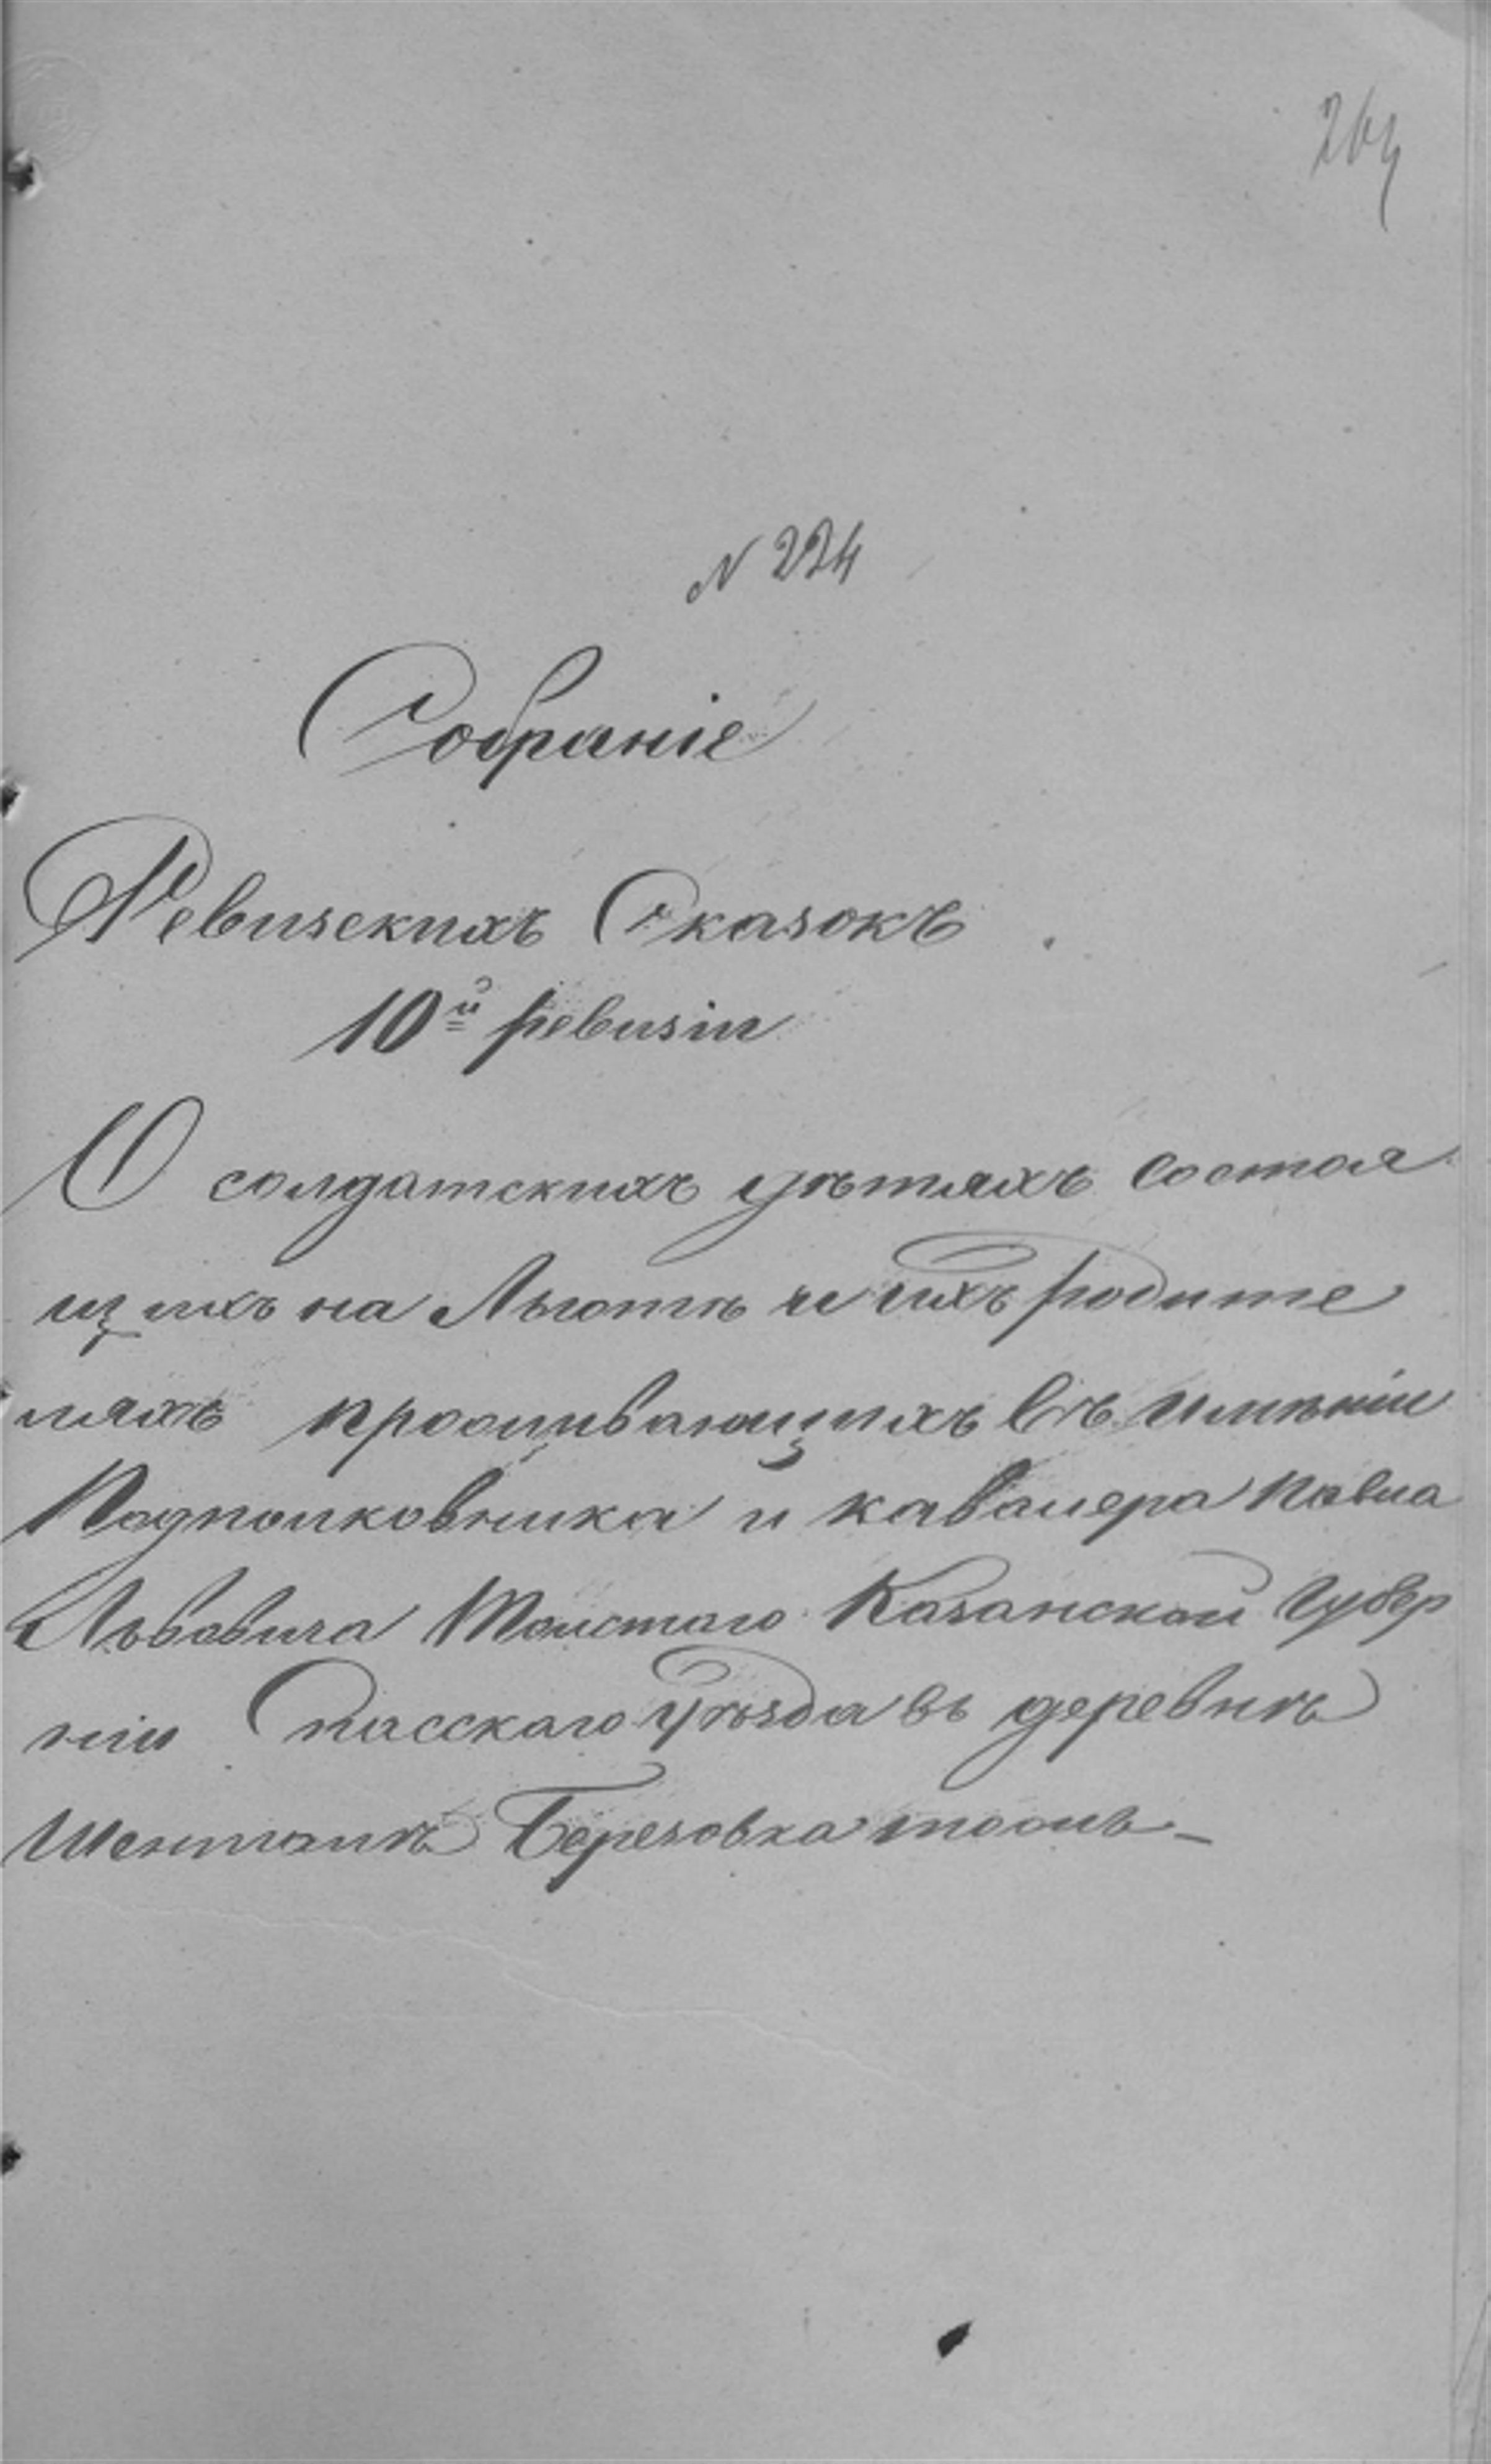 264
N 224
Собраніе
Ревизскихъ Сказокъ
10й ревизіи
О солдатскихъ дѣтяхъ состоя
щихъ на Льготѣ и ихъ родите
ляхъ проживающихъ въ имѣніи
Подполковника и кавалера Павла
Львовича Толстаго Казанской Губер
ніи Спасскаго Уѣзда въ деревнѣ
Шенталѣ Березовка тожъ